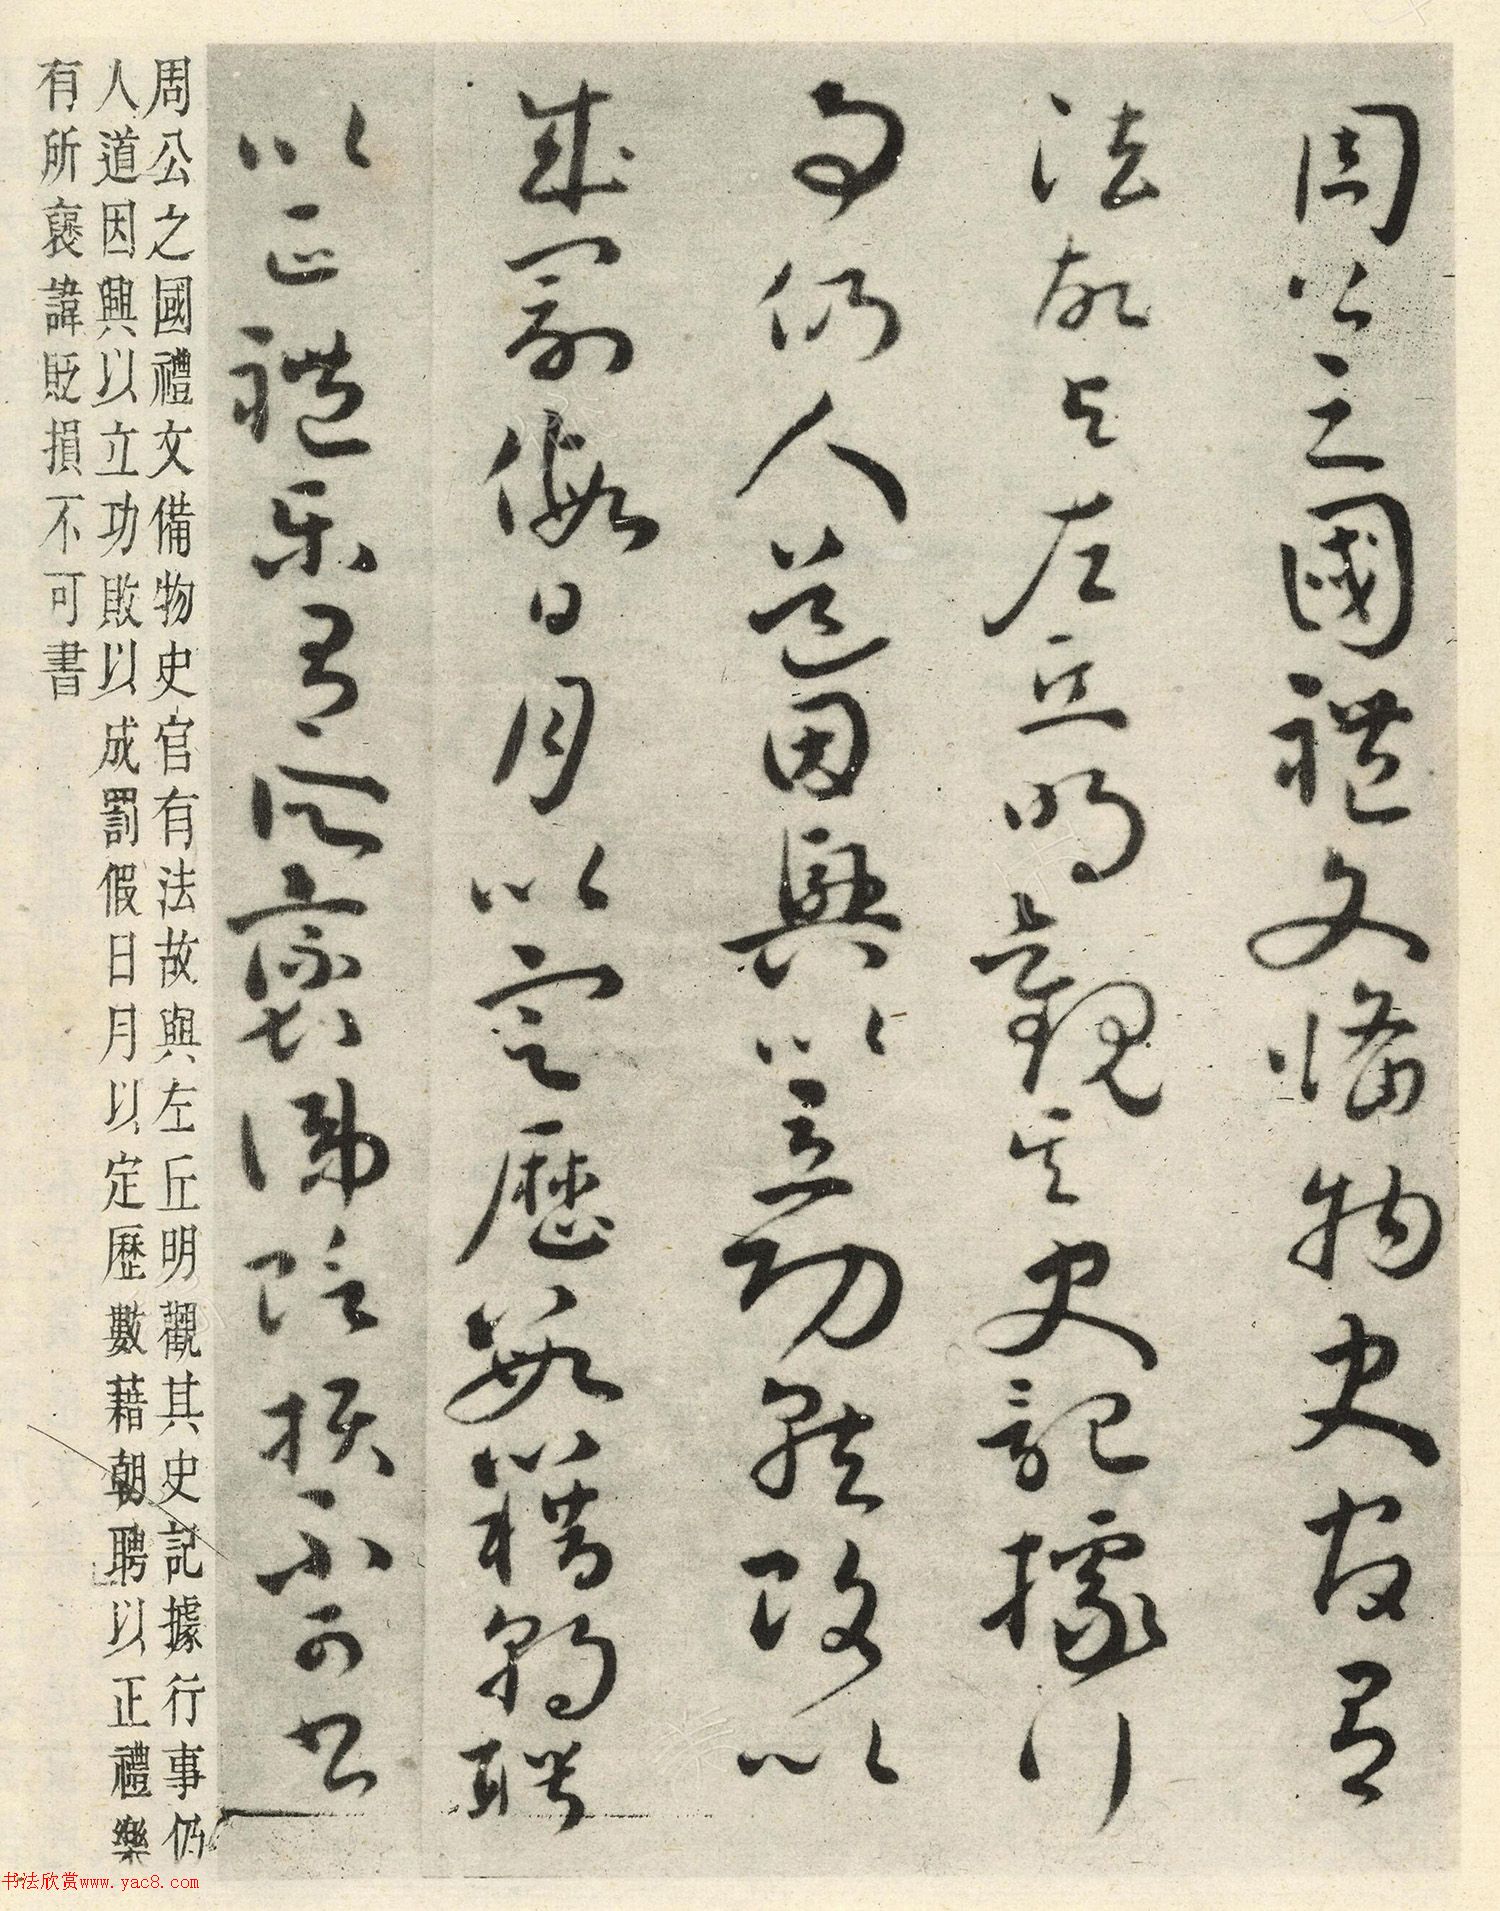 周公之國禮文備物史官有
法故與左丘明觀其史記據行
事仍人道因興以立功就敗以
成罰假日月以定歷數藉朝聘
以正禮樂有所褒諱貶損不可書
周公之國禮文備物史官有法故與左丘明觀其史記據行事仍
人道因興以立功敗以成罰假日月以定歷數藉朝聘以正禮樂
有所褒諱貶損不可書
书法欣赏www.yac8.com